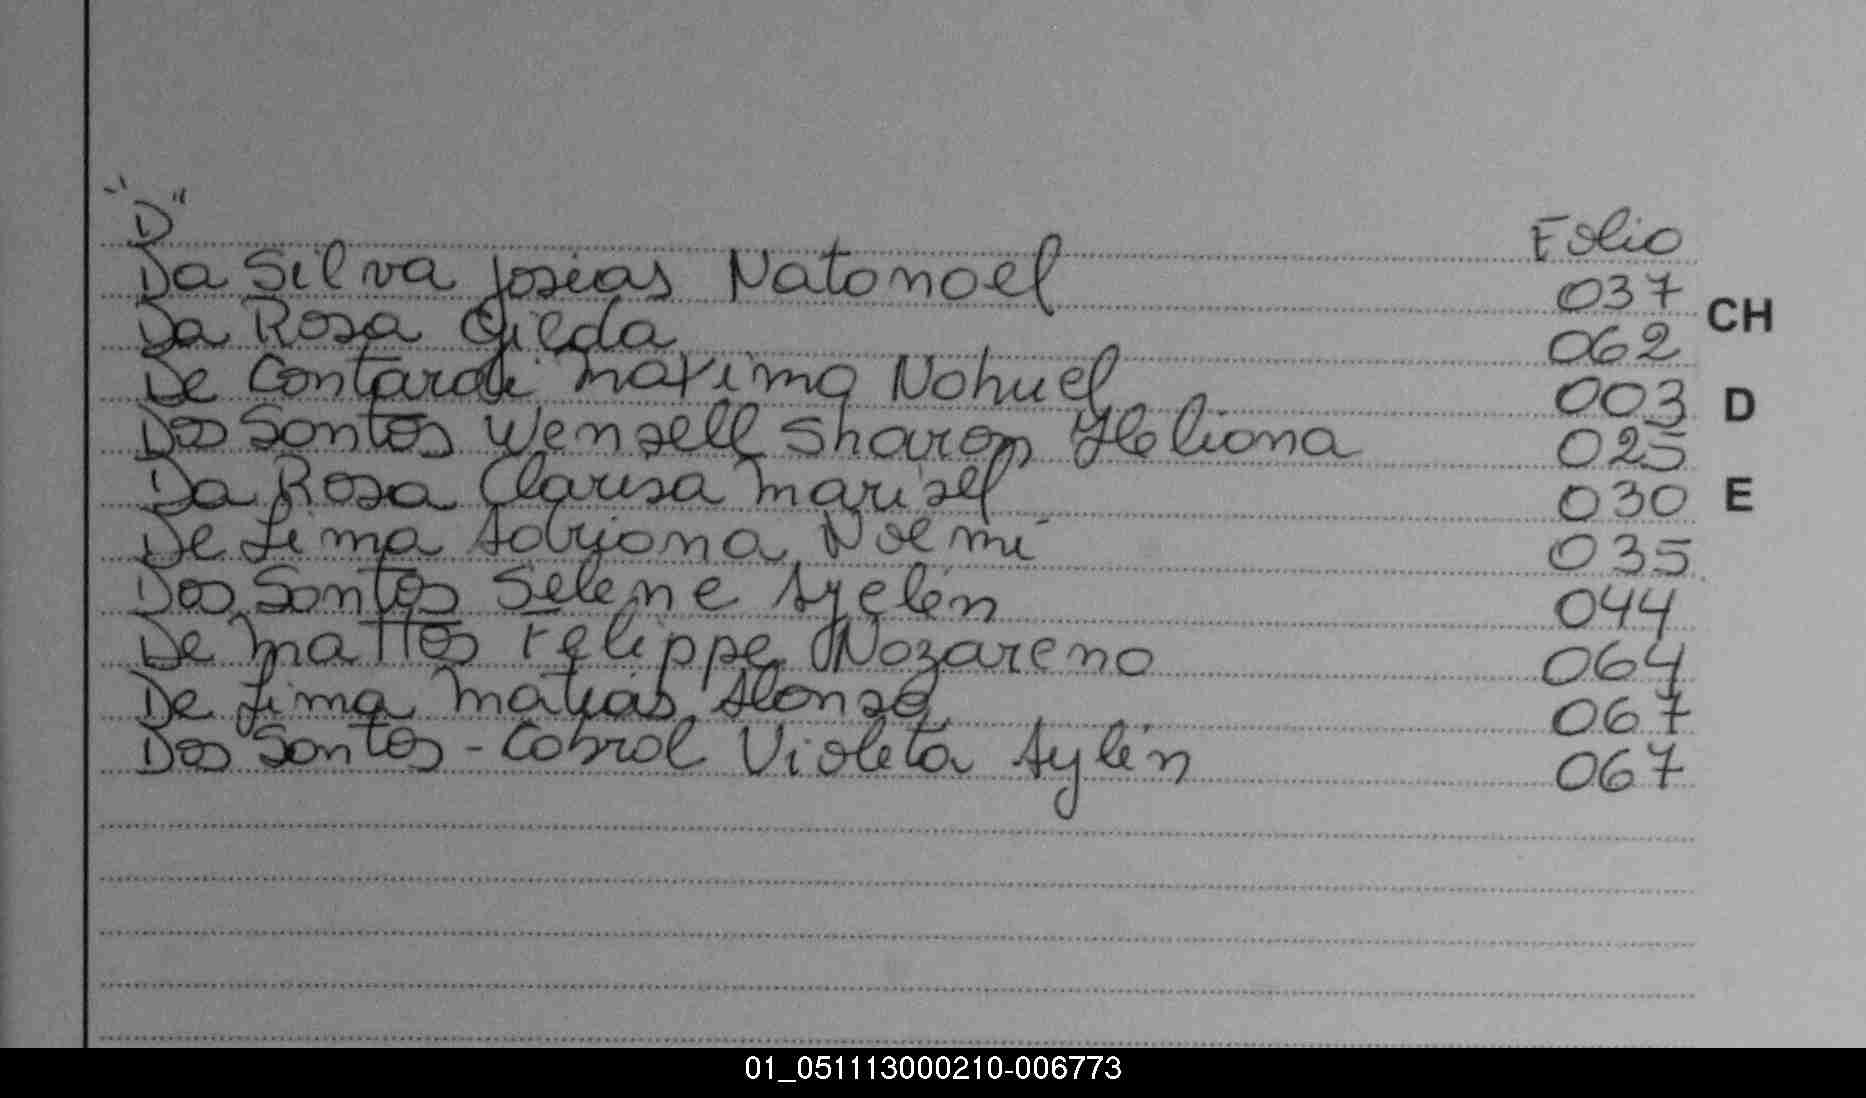 "D"
Folio
Da Silva Josias Natanael 037
CH
Da Rosa Gilda 062
De Contardi Maximo Nahuel 003
D
Dos Santos Wensell Sharon Heliana 025
Da Rosa Clarisa Marisel 030
E
De Lima Adriana Noemí 035
Dos Santos Selene Ayelén 044
De Mattos Felippe Nazareno 064
De Lima Matias Alonso 067
Dos Santos - Cabral Violeta Aylén 067
01_051113000210-006773